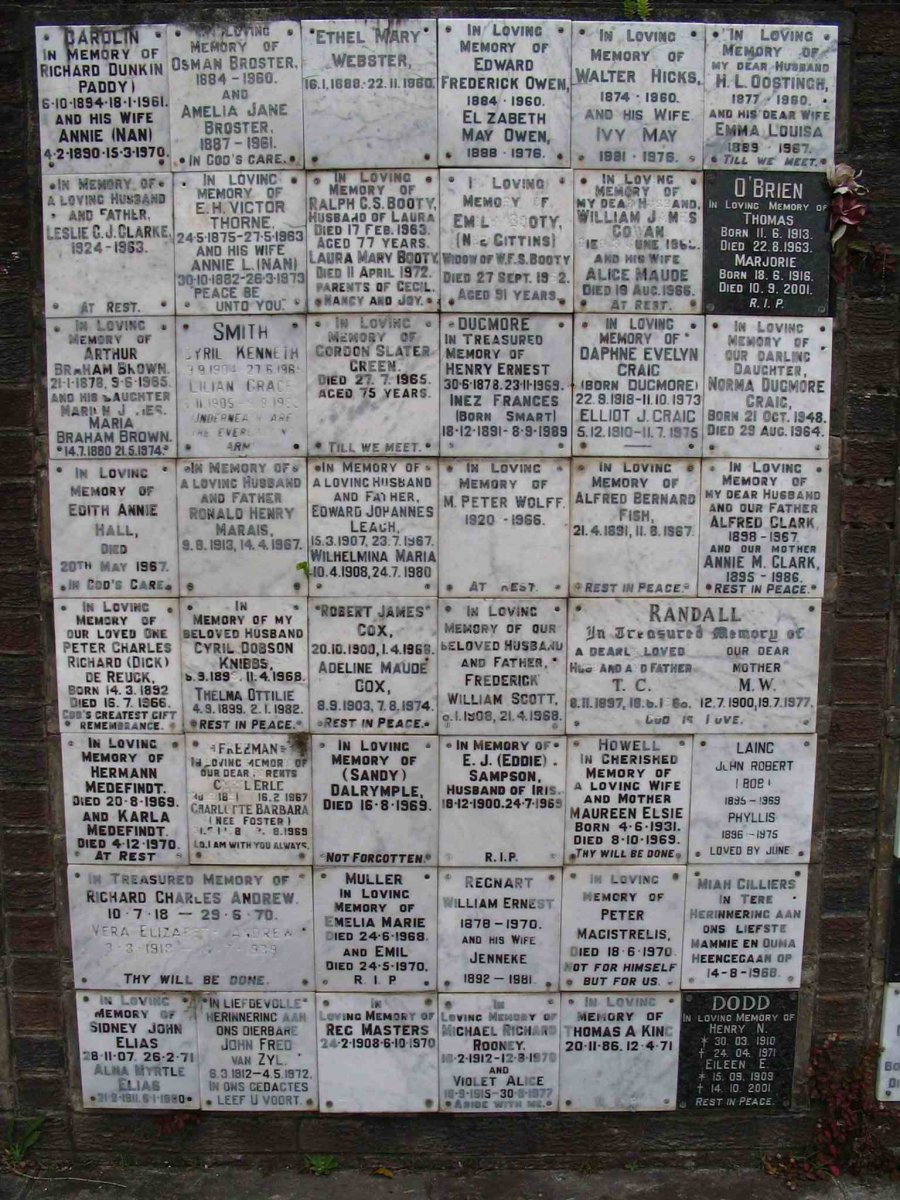 CAROLIN
IN MEMORY OF
RICHARD DUNKIN
PADDY)
6·10·1894·18·1·1961.
AND HIS WIFE
ANNIE (NAN)
4·2·1890·15·3·1970.
IN LOVING
MEMORY OF
OSMAN BROSTER,
1884-1960.
AND
AMELIA JANE
BROSTER,
1887-1961.
IN GOD'S CARE.
ETHEL MARY
WEBSTER,
16.1.1688-22.11.1960.
IN LOVING
MEMORY OF
EDWARD
FREDERICK OWEN,
1884-1960.
EL ZABETH
MAY OWEN,
1898-1976.
IN LOVING
MEMORY OF
WALTER HICKS,
1874-1960.
AND HIS WIFE
IVY MAY
1981-1976.
IN LOVING
MEMORY OF
MY DEAR HUSBAND
H.L. OOSTINGH,
1877-1960.
AND HIS DEAR WIFE
EMMA LOUISA
1889-1967.
TILL WE MEET.
IN MEMORY OF
A LOVING HUSBAND
AND FATHER,
LESLIE C.J. CLARKE,
1924-1963.
AT REST.
IN LOVING
MEMORY OF
E.H. VICTOR
THORNE.
24·5·1875-27·5·1963
AND HIS WIFE
ANNIE L.(NAN)
30·10·1882-26·3·1973
PEACE BE
UNTO YOU.
IN LOVING
MEMORY OF
RALPH C.S. BOOTY,
HUSBAND OF LAURA
DIED 17 FEB. 1963.
AGED 77 YEARS.
LAURA MARY BOOTY
DIED 11 APRIL 1972.
PARENTS OF CECIL,
NANCY AND JOY.
LOVING
MEMORY OF
BOOTY,
GITTINS)
WIDOW OF W.F.S. BOOTY
DIED 27 SEPT.
AGED 91 YEARS.
IN LOVING
MEMORY OF
MY DEAR HUSBAND,
WILLIAM
AND HIS WIFE
ALICE MAUDE
DIED 19 AUG. 1966.
AT REST.
O'BRIEN
IN LOVING MEMORY OF
THOMAS
BORN 11. 6. 1913.
DIED 22.8.1963.
MARJORIE
BORN 18. 6. 1916.
DIED 10. 9. 2001.
R. I. P.
IN LOVING
MEMORY OF
ARTHUR
BRAHAM BROWN.
21·1·1878, 9·6·1965.
AND HIS DAUGHTER
MARIA
BRAHAM BROWN.
14.7.1880 21.5.1974.
SMITH
CYRIL KENNETH
LILIAN GRACE
UNDERNEATH ARE
THE
ARMS
IN LOVING
MEMORY OF
GORDON SLATER
GREEN.
DIED 27. 7. 1965.
AGED 75 YEARS.
TILL WE MEET.
DUGMORE
IN TREASURED
MEMORY OF
HENRY ERNEST
30·6·1878. 23·11·1969.
INEZ FRANCES
(BORN SMART)
18·12·1891-8·9·1989
IN LOVING
MEMORY OF
DAPHNE EVELYN
CRAIG
(BORN DUGMORE)
22. 9. 1918-11. 10. 1973
ELLIOT J. CRAIG
5. 12. 1910-11. 7. 1975
IN LOVING
MEMORY OF
OUR DARLING
DAUGHTER,
NORMA DUGMORE
CRAIG,
BORN 21 OCT. 1948.
DIED 29 AUG. 1964.
IN LOVING
MEMORY OF
EDITH ANNIE
HALL,
DIED
20TH MAY 1967.
IN GOD'S CARE.
IN MEMORY OF
A LOVING HUSBAND
AND FATHER
RONALD HENRY
MARAIS,
9. 8. 1913, 14. 4. 1967.
IN MEMORY OF
A LOVING HUSBAND
AND FATHER,
EDWARD JOHANNES
LEACH,
15.3.1907, 23.7.1967.
WILHELMINA MARIA
10.4.1908, 24.7. 1980
IN LOVING
MEMORY OF
M. PETER WOLFF
1920-1966.
AT REST.
IN LOVING
MEMORY OF
ALFRED BERNARD
FISH,
21.4.1891, 11.8.1967.
REST IN PEACE.
IN LOVING
MEMORY OF
MY DEAR HUSBAND
AND OUR FATHER
ALFRED CLARK,
1898-1967.
AND OUR MOTHER
ANNIE M. CLARK,
1895-1986.
REST IN PEACE.
IN LOVING
MEMORY OF
OUR LOVED ONE
PETER CHARLES
RICHARD (DICK)
DE REUCK,
BORN 14. 3. 1892
DIED 16. 7. 1966.
GOD'S GREATEST GIFT
REMEMBRANCE.
IN
MEMORY OF MY
BELOVED HUSBAND
CYRIL DOBSON
KNIBBS,
11.4.1968.
THELMA OTTILIE
4.9.1899. 2.1.1982.
REST IN PEACE.
ROBERT JAMES
COX,
20.10.1900, 1.4.1968.
ADELINE MAUDE
COX,
8.9.1903, 7.8.1974.
REST IN PEACE.
IN LOVING
MEMORY OF OUR
BELOVED HUSBAND
AND FATHER,
FREDERICK
WILLIAM SCOTT,
1908, 21.4.1968.
RANDALL
In Treasured Memory of
A DEARLY LOVED
HUSBAND AND FATHER
T. C.
8.11.1897,
OUR DEAR
MOTHER
M.W.
12.7.1900, 19.7.1977.
GOD IS LOVE.
IN LOVING
MEMORY OF
HERMANN
MEDEFINDT.
DIED 20·8·1969.
AND KARLA
MEDEFINDT.
DIED 4·12·1970.
AT REST
FREEMAN
IN LOVING MEMORY OF
OUR DEAR PARENTS
16.2.1967
CHARLOTTE BARBARA
(NEE FOSTER)
1969
LO, I AM WITH YOU ALWAYS.
IN LOVING
MEMORY OF
(SANDY)
DALRYMPLE,
DIED 16·8·1969.
NOT FORGOTTEN.
IN MEMORY OF
E. J. (EDDIE)
SAMPSON,
HUSBAND OF IRIS.
18·12·1900. 24·7·1969
R. I. P.
HOWELL
IN CHERISHED
MEMORY OF
A LOVING WIFE
AND MOTHER
MAUREEN ELSIE
BORN 4·6·1931.
DIED 8·10·1969.
THY WILL BE DONE
LAING
JOHN ROBERT
(BOB)
1895-1969
PHYLLIS
1896-1975
LOVED BY JUNE.
IN TREASURED MEMORY OF
RICHARD CHARLES ANDREW.
10·7·18 — 29·6·70.
VERA ELIZABETH ANDREW
THY WILL BE DONE.
MULLER
IN LOVING
MEMORY OF
EMELIA MARIE
DIED 24·6·1968.
AND EMIL
DIED 24·5·1970.
R. I. P
REGNART
WILLIAM ERNEST
1878-1970.
AND HIS WIFE
JENNEKE
1892-1981.
IN LOVING
MEMORY OF
PETER
MAGISTRELIS,
DIED 18·6·1970.
NOT FOR HIMSELF
BUT FOR US.
MIAH CILLIERS
IN TERE
HERINNERING AAN
ONS LIEFSTE
MAMMIE EN OUMA
HEENGEGAAN OP
14-8-1968.
IN LOVING
MEMORY OF
SIDNEY JOHN
ELIAS
28·11·07. 26·2·71
ALMA MYRTLE
ELIAS
IN LIEFDEVOLLE
HERINNERING AAN
ONS DIERBARE
JOHN FRED
VAN ZYL.
8.3.1912-4.5.1972.
IN ONS GEDAGTES
LEEF U VOORT.
IN
LOVING MEMORY OF
REG MASTERS
24·2·1908·6·10·1970
IN
LOVING MEMORY OF
MICHAEL RICHARD
ROONEY.
AND
VIOLET ALICE
ABIDE WITH ME.
IN LOVING
MEMORY OF
THOMAS A KING
20·11·86. 12·4·71
DODD
IN LOVING MEMORY OF
HENRY N.
* 30. 03. 1910
† 24. 04. 1971
EILEEN E.
* 15. 09. 1909
† 14. 10. 2001
REST IN PEACE.